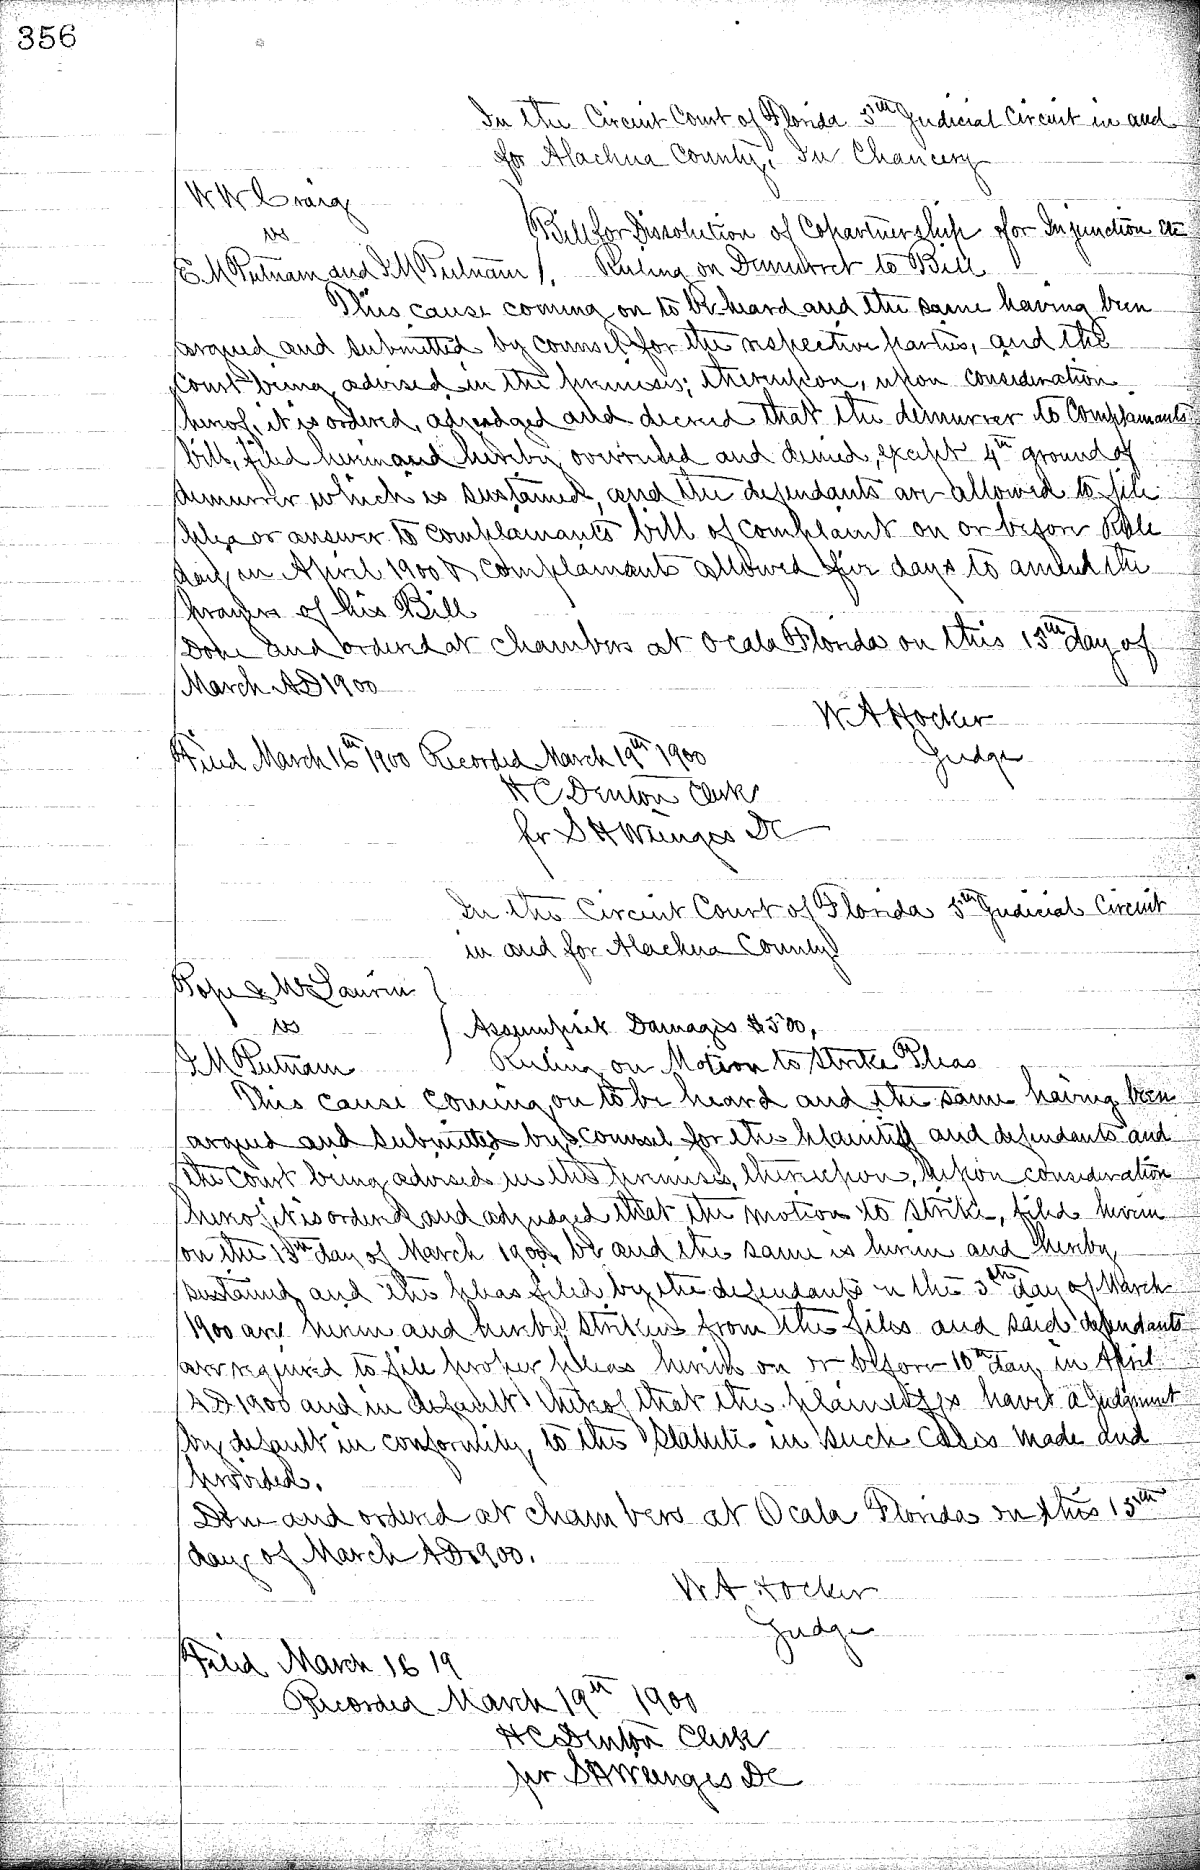 356
In the Circuit Court of Florida 5th Judicial Circuit in and
for Alachua County, In Chancery
W W Craig
vs
Bill for Dissolution of Copartnership & for Injunction etc
E. M Putnam and I M Putnam Ruling on Demurrer to Bill
This cause coming on to be heard and the same having been
argued and submitted by counsel for the respective parties, and the
court being advised in the premises; thereupon, upon consideration
hereof, it is ordered, adjudged and decreed that the demurrer to Complainants
bill, filed herein and hereby overruled and denied, except 4th ground of
demurrer which is sustained, and the defendants are allowed to file
plea or answer to complainants bill of complaint on or before Rule
day in April 1900 & complainants allowed five days to amend the
prayers of his Bill
Done and ordered at Chambers at Ocala Florida on this 15th day of
March AD 1900
W A Hocker
Judge
Filed March 16th 1900 Recorded March 19th 1900
H C Denton Clerk
pr S H Wienges DC
In the Circuit Court of Florida 5th Judicial Circuit
in and for Alachua County
Pope & McLaurin
vs
Assumpsit Damages $500,
I M Putnam Ruling on Motion to Strike Pleas
This cause coming on to be heard and the same having been
argued and submitted by counsel for the plaintiff and defendants and
the Court being advised in the premises, thereupon, upon consideration
hereof it is ordered and adjudged that the motion to strike, filed herein
on the 13th day of March 1900, be and the same is herein and hereby
sustained and the pleas filed by the defendants n the 5th day of March
1900 are herein and hereby striken from the files and said defendants
are required to file proper pleas herein on or before 10th day in April
AD 1900 and in default thereof that the plaintiffs have a Judgment
by default in conformity to the Statute in such cases made and
provided.
Done and ordered at chambers at Ocala Florida on this 15th
day of March AD 1900.
W A Hocker
Judge
Filed March 16 19
Recorded March 19th 1900
H C Denton Clerk
pr S H Wienges DC